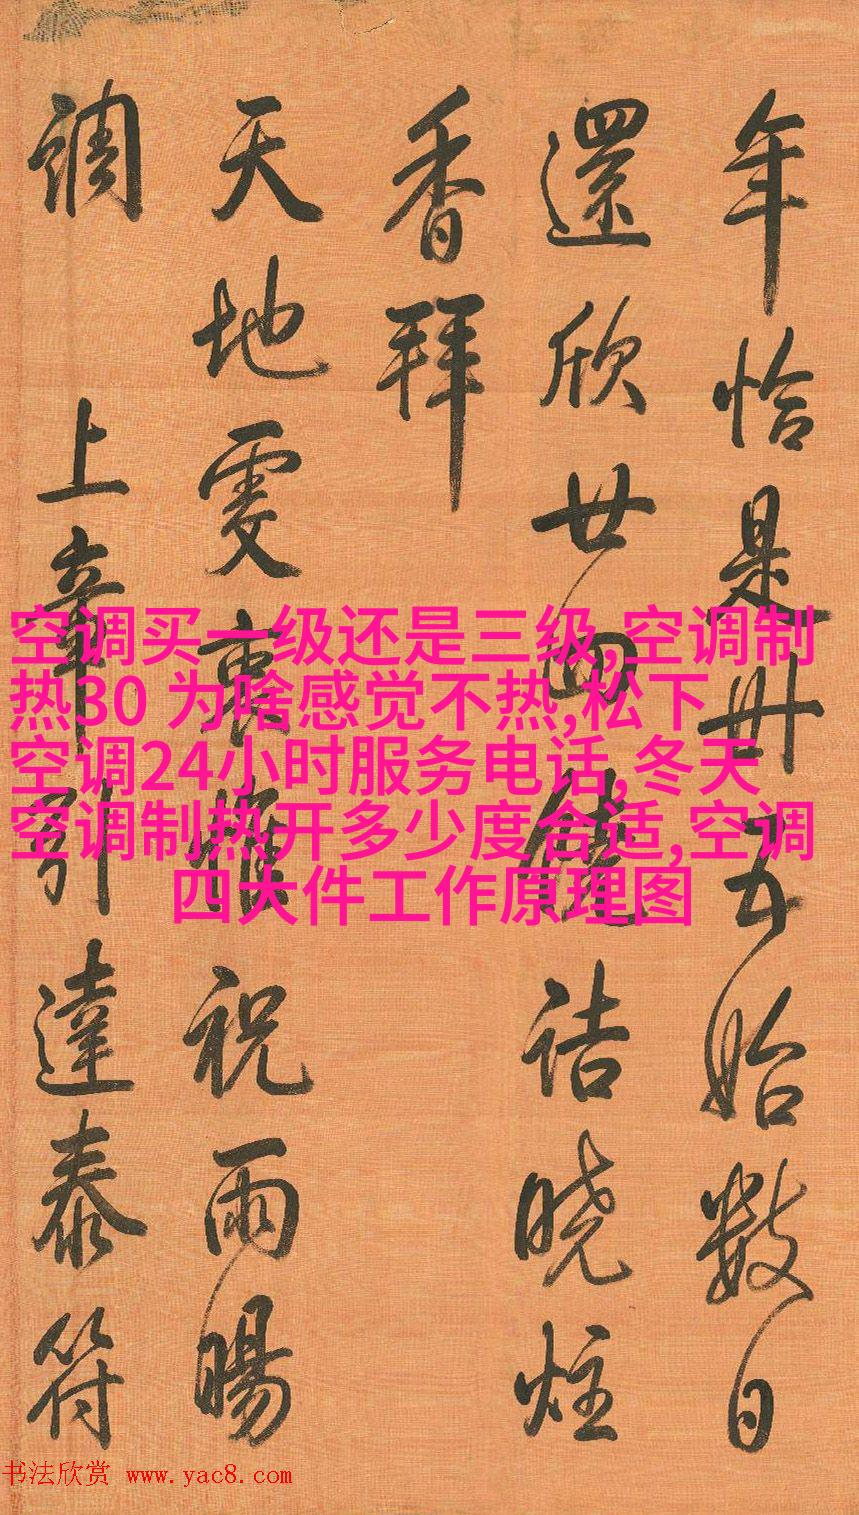 年恰是卅五始數日
還欣廿四詰曉炷
香拜
天地虔衷惟祝雨暘
調上辛引達泰符
空调买一级还是三级,空调制
热30 为啥感觉不热,松下
空调24小时服务电话,冬天
空调制热开多少度合适,空调
四大件工作原理图
书法欣赏 www.yac8.com